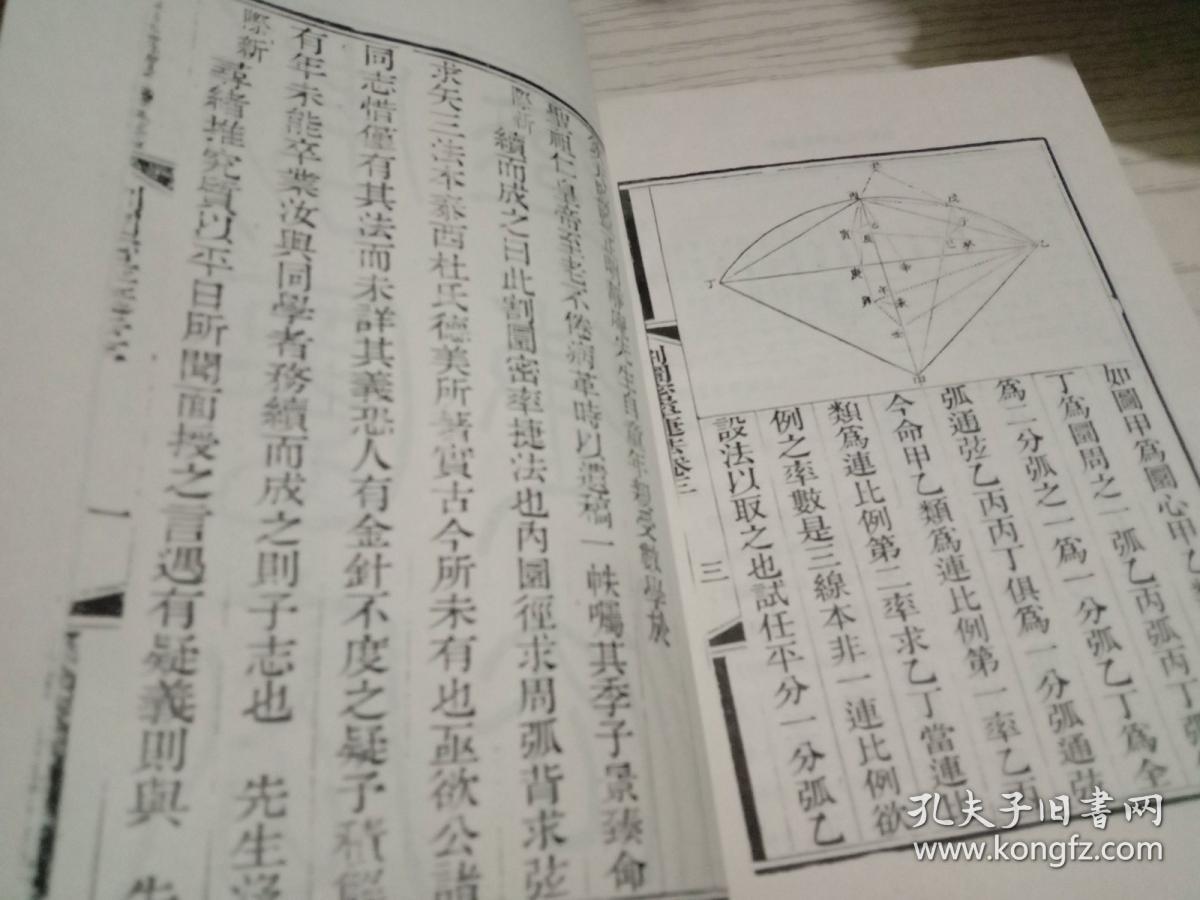 聖祖仁皇帝至老不倦病革時以遺稿一帙囑其季子景臻命
際新續而成之曰此割圜密率捷法也內圜徑求周弧背求弦
求矢三法本泰西杜氏德美所著實古今所未有也亟欲公諸
同志惜僅有其法而未詳其義恐人有金針不度之疑予積解
有年未能卒業汝與同學者務續而成之則予志也 先生
際新尋緒推究質以平日所聞面授之言遇有疑義則與
一
丙
戊
丁
乙
寅
庚
辛
甲
如圖甲為圜心甲乙
丁為圜周之一弧乙丙弧丙丁弧
為二分弧之一為一分弧乙丁為全
弧通弦乙丙丙丁俱為一分弧通弦
今命甲乙類為連比例第一率乙丙
類為連比例第二率求乙丁當連比
例之率數是三線本非一連比例欲
設法以取之也試任平分一分弧乙
割圜密率捷法卷三
三
孔夫子旧书网
www.kongfz.com